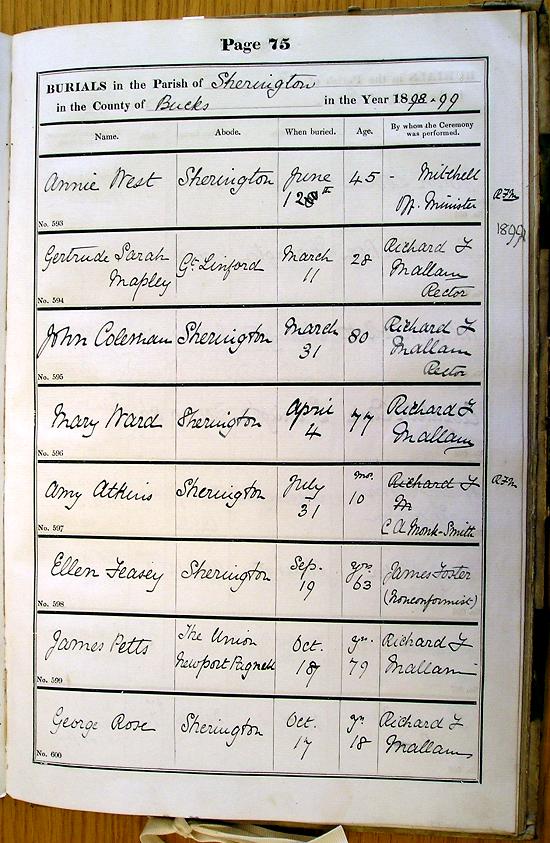 Page 75
BURIALS in the Parish of Sherington
in the County of Bucks in the Year 1898-99
Name. Abode. When buried. Age. By whom the Ceremony was performed.
Annie West Sherington June 45 - Mitchell
12th Pr. Minister R.F.M.
No. 593
1899
Gertrude Sarah Gt. Linford March 28 Richard F
Mapley 11 Mallam
No. 594 Rector
John Coleman Sherington March 80 Richard F
31 Mallam
No. 595 Rector
Mary Ward Sherington April 77 Richard F
4 Mallam
No. 596
Amy Atkins Sherington July mos. Richard F
31 10 M R.F.M.
No. 597 C A Monk-Smith
Ellen Feasey Sherington Sep. yrs. James Foster
19 63 (Nonconformist)
No. 598
James Petts The Union Oct. yrs. Richard F
Newport Pagnell 79 Mallam
No. 599
George Rose Sherington Oct. yrs. Richard F
17 18 Mallam
No. 600